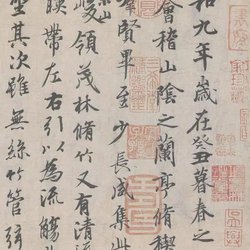 和九年歲在癸丑暮春之
會稽山陰之蘭亭脩禊
羣賢畢至少長咸集此
崇山
峻領茂林脩竹又有清流
映帶左右引以為流觴
坐其次雖無絲竹管弦